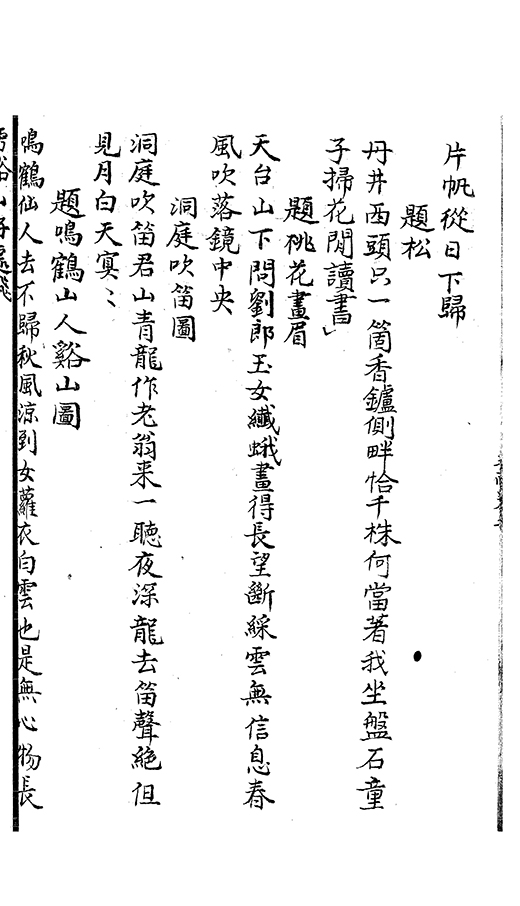 片帆從日下歸
題松
丹井西頭只一箇香鑪側畔恰千株何當著我坐盤石童
子掃花閒讀書
題桃花畫眉
天台山下問劉郎玉女纖蛾畫得長望斷綵雲無信息春
風吹落鏡中央
洞庭吹笛圖
洞庭吹笛君山青龍作老翁来一聽夜深龍去笛聲絶但
見月白天寞〻
題鳴鶴山人谿山圖
鳴鶴仙人去不歸秋風涼到女蘿衣白雲也是無心物長